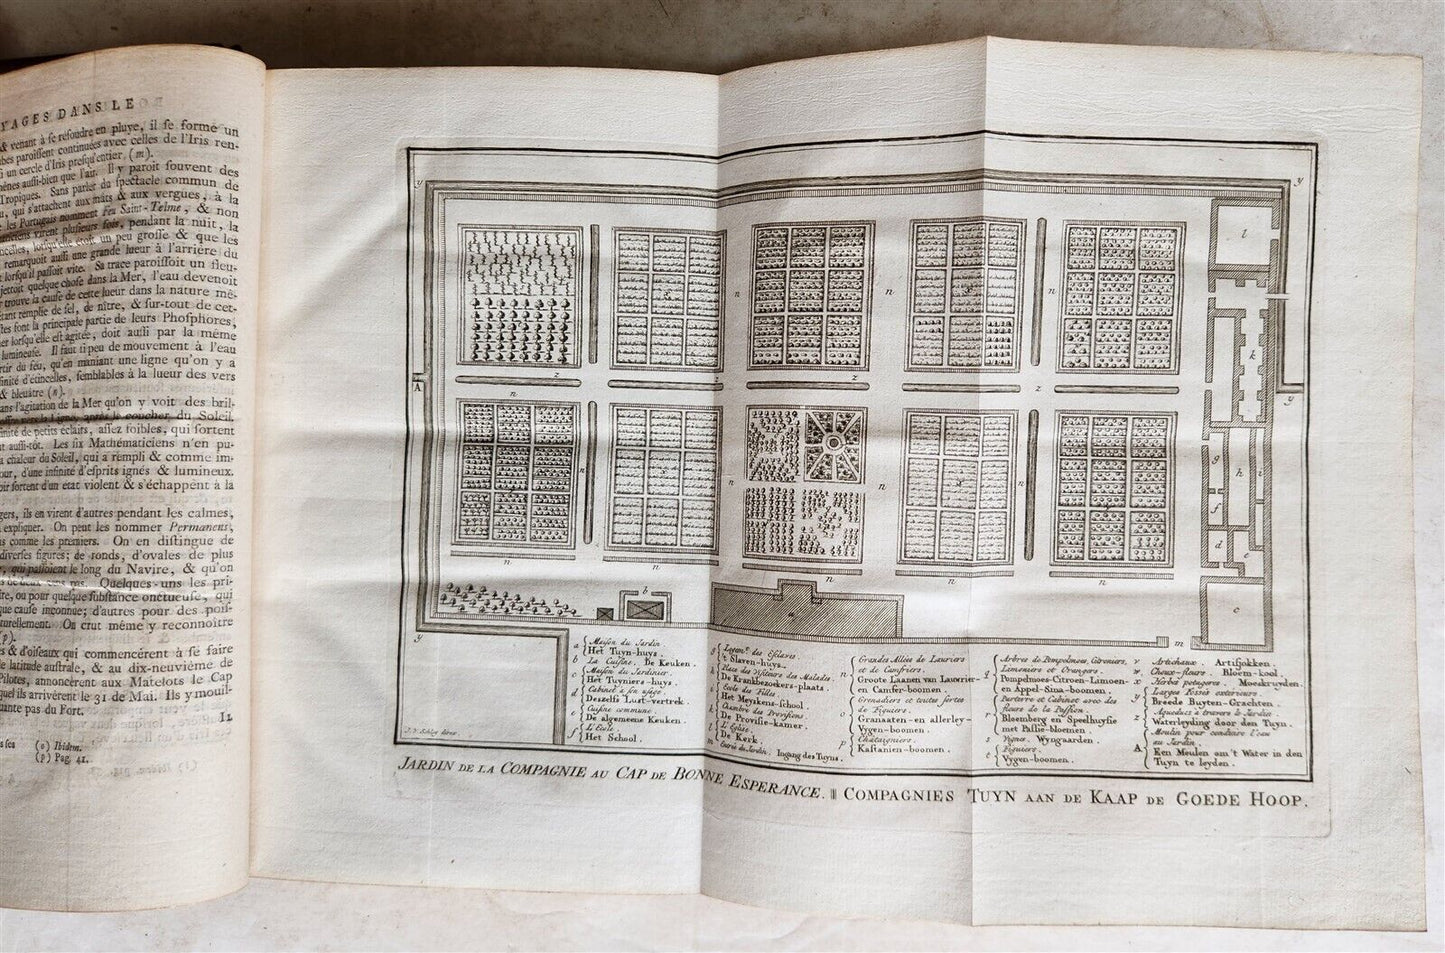 YAGES DANS LE
& venant à se résoudre en pluye, il se forme un
bes paroissent continuées avec celles de l'Iris ren-
i un cercle d'Iris presqu'entier. (m).
aussi-bien que l'air. Il y paroit souvent des
Tropiques. Sans parler du spectacle commun de
u, qui s'attachent aux mâts & aux vergues, à la
les Portugais nomment feu Saint-Telme, & non
virent plusieurs fois, pendant la nuit, la
lorsqu'elle étoit un peu grosse & que les
remarquoit aussi une grande lueur à l'arrière du
lorsqu'il passoit vite. Sa trace paroissoit un fleu-
jettoit quelque chose dans la Mer, l'eau devenoit
trouve la cause de cette lueur dans la nature mê-
étant remplie de sel, de nître, & sur-tout de cet-
tes font la principale partie de leurs Phosphores,
er lorsqu'elle est agitée, doit aussi par la même
lumineuse. Il faut si peu de mouvement à l'eau
rtir du feu, qu'en maniant une ligne qu'on y a
finité d'étincelles, semblables à la lueur des vers
& bleuâtre (n).
ans l'agitation de la Mer qu'on y voit des bril-
après le coucher du Soleil.
nité de petits éclairs, assez foibles, qui sortent
t aussi-tôt. Les six Mathématiciens n'en pu-
chaleur du Soleil, qui a rempli & comme im-
our, d'une infinité d'esprits ignés & lumineux.
oir sortent d'un état violent & s'échappent à la
gers, ils en virent d'autres pendant les calmes,
expliquer. On peut les nommer Permanens,
s comme les premiers. On en distingue de
diverses figures; de ronds, d'ovales de plus
qui passoient le long du Navire, & qu'on
pas. Quelques-uns les pri-
re, ou pour quelque substance onctueuse, qui
que cause inconnue; d'autres pour des pois-
turellement. On crut même y reconnoître
p).
s & d'oiseaux qui commencérent à se faire
e latitude australe, & au dix-neuvième de
Pilotes, annoncérent aux Matelots le Cap
quel ils arrivérent le 31 de Mai. Ils y mouil-
uante pas du Fort.
Il
(o) Ibidem.
(p) Pag. 41.
y
y
l
k
A
n
n
n
z
z
z
y
n
n
n
n
g
h
i
f
d
e
c
n
n
n
n
b
a
y
m
a Maison du Jardin
Het Tuyn-huys.
b La Cuisine. De Keuken.
c Maison du Jardinier.
Het Tuyniers-huys.
d Cabinet à son usage.
Deszelfs Lust-vertrek.
e Cuisine commune.
De algemeene Keuken.
f L'Ecole.
Het School.
g Logem.t des Esclaves
't Slaven-huys.
h Place des Visiteurs des Malades.
De Krankbezoekers-plaats.
i Ecole des Filles.
Het Meyskens-school.
k Chambre des Provisions.
De Provisie-kamer.
l L'Eglise.
De Kerk.
m Entrée du Jardin. Ingang des Tuyns.
n Grandes Allées de Lauriers
et de Camfriers.
Groote Laanen van Laurier-
en Camfer-boomen.
o Grenadiers et toutes sortes
de Figuiers.
Granaaten- en allerley-
Vygen-boomen.
p Châtaigniers.
Kastanien-boomen.
q Arbres de Pompelmoes, Citroniers,
Limoniers et Orangers.
Pompelmoes-Citroen-Limoen-
en Appel-Sina-boomen.
r Parterre et Cabinet avec des
fleurs de la Passion.
Bloemberg en Speelhuysie
met Passie-bloemen.
s Vignes. Wyngaarden.
t Figuiers.
Vygen-boomen.
v Artichaux. Artisjokken.
w Choux-fleurs. Bloem-kool.
x Herbes potageres. Moeskruyden.
y Larges Fossés exterieurs.
Breede Buyten-Grachten.
z Aqueducs à travers le Jardin.
Waterleyding door den Tuyn.
A Moulin pour conduire l'eau
au Jardin.
Een Meulen om 't Water in den
Tuyn te leyden.
J. V. Schley direx.
JARDIN DE LA COMPAGNIE AU CAP DE BONNE ESPERANCE. || COMPAGNIES TUYN AAN DE KAAP DE GOEDE HOOP.